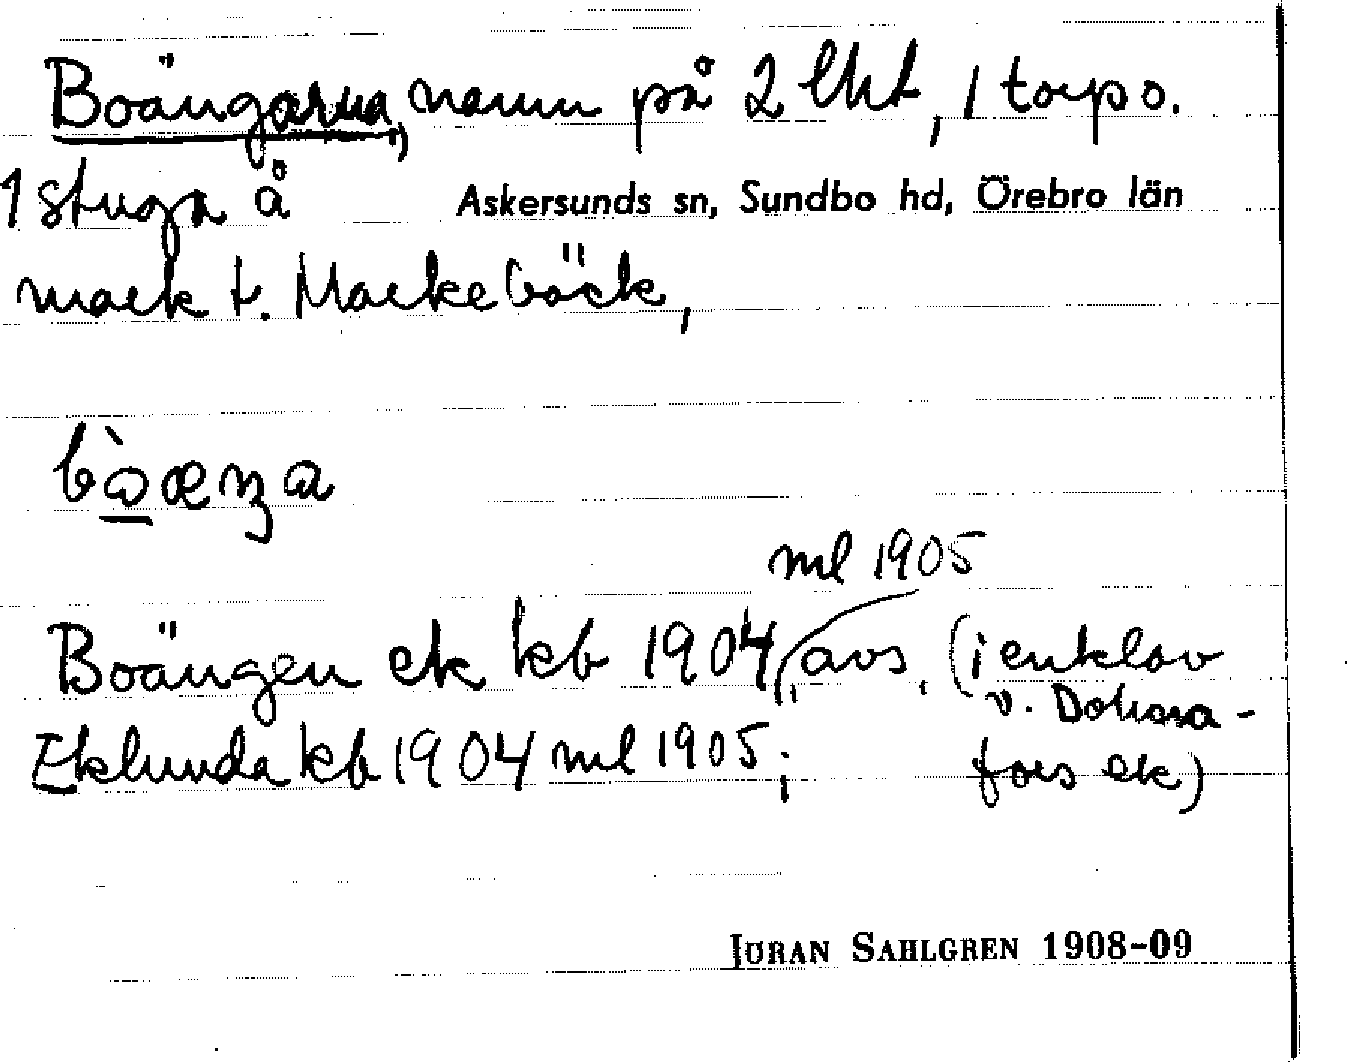 Boängarna, namn på 2 lht, 1 torp o.
1 stuga å Askersunds sn, Sundbo hd, Örebro län
mark t. Markebäck,
bòæŋa
ml 1905
Boängen ek kb 1904, avs. (i enklav
v. Dohna-
Eklunda kb 1904 ml 1905; fors ek)
JÖRAN SAHLGREN 1908-09